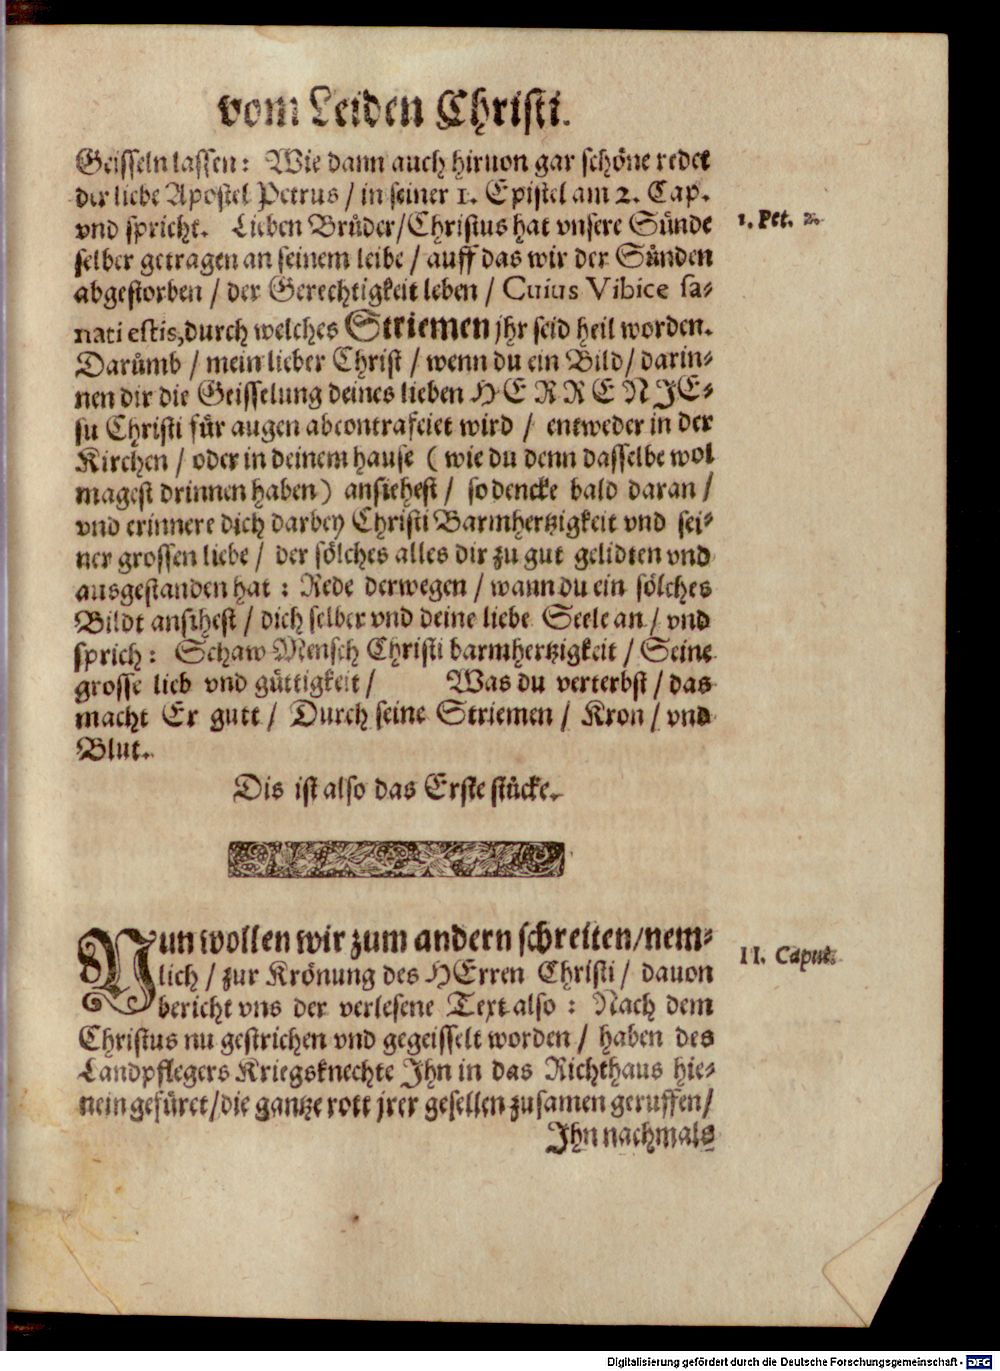 vom Leiden Christi.
Geisseln lassen: Wie dann auch hiruon gar schöne redet
der liebe Apostel Petrus / in seiner 1. Epistel am 2. Cap.
vnd spricht. Lieben Brüder/Christus hat vnsere Sünde
selber getragen an seinem leibe / auff das wir der Sünden
abgestorben / der Gerechtigkeit leben / Cuius Vibice sa-
nati estis, durch welches Striemen jhr seid heil worden.
1. Pet. 2.
Darümb / mein lieber Christ / wenn du ein Bild/ darin-
nen dir die Geisselung deines lieben HERREN JE-
su Christi für augen abcontrafeiet wird / entweder in der
Kirchen / oder in deinem hause ( wie du denn dasselbe wol
magest drinnen haben) ansiehest / so dencke bald daran /
vnd erinnere dich darbey Christi Barmhertzigkeit vnd sei-
ner grossen liebe / der sölches alles dir zu gut gelidten vnd
ausgestanden hat : Rede derwegen / wann du ein sölches
Bildt ansihest / dich selber vnd deine liebe Seele an / vnd
sprich: Schaw Mensch Christi barmhertzigkeit / Seine
grosse lieb vnd güttigkeit / Was du verterbst / das
macht Er gutt / Durch seine Striemen / Kron / vnd
Blut.
Dis ist also das Erste stücke.
Nun wollen wir zum andern schreiten/nem-
lich / zur Krönung des HErren Christi / dauon
bericht vns der verlesene Text also : Nach dem
Christus nu gestrichen vnd gegeisselt worden / haben des
Landpflegers Kriegsknechte Jhn in das Richthaus hie-
nein gefüret/die gantze rott jrer gesellen zusamen geruffen/
Jhn nachmals
II. Caput.
Digitalisierung gefördert durch die Deutsche Forschungsgemeinschaft - DFG